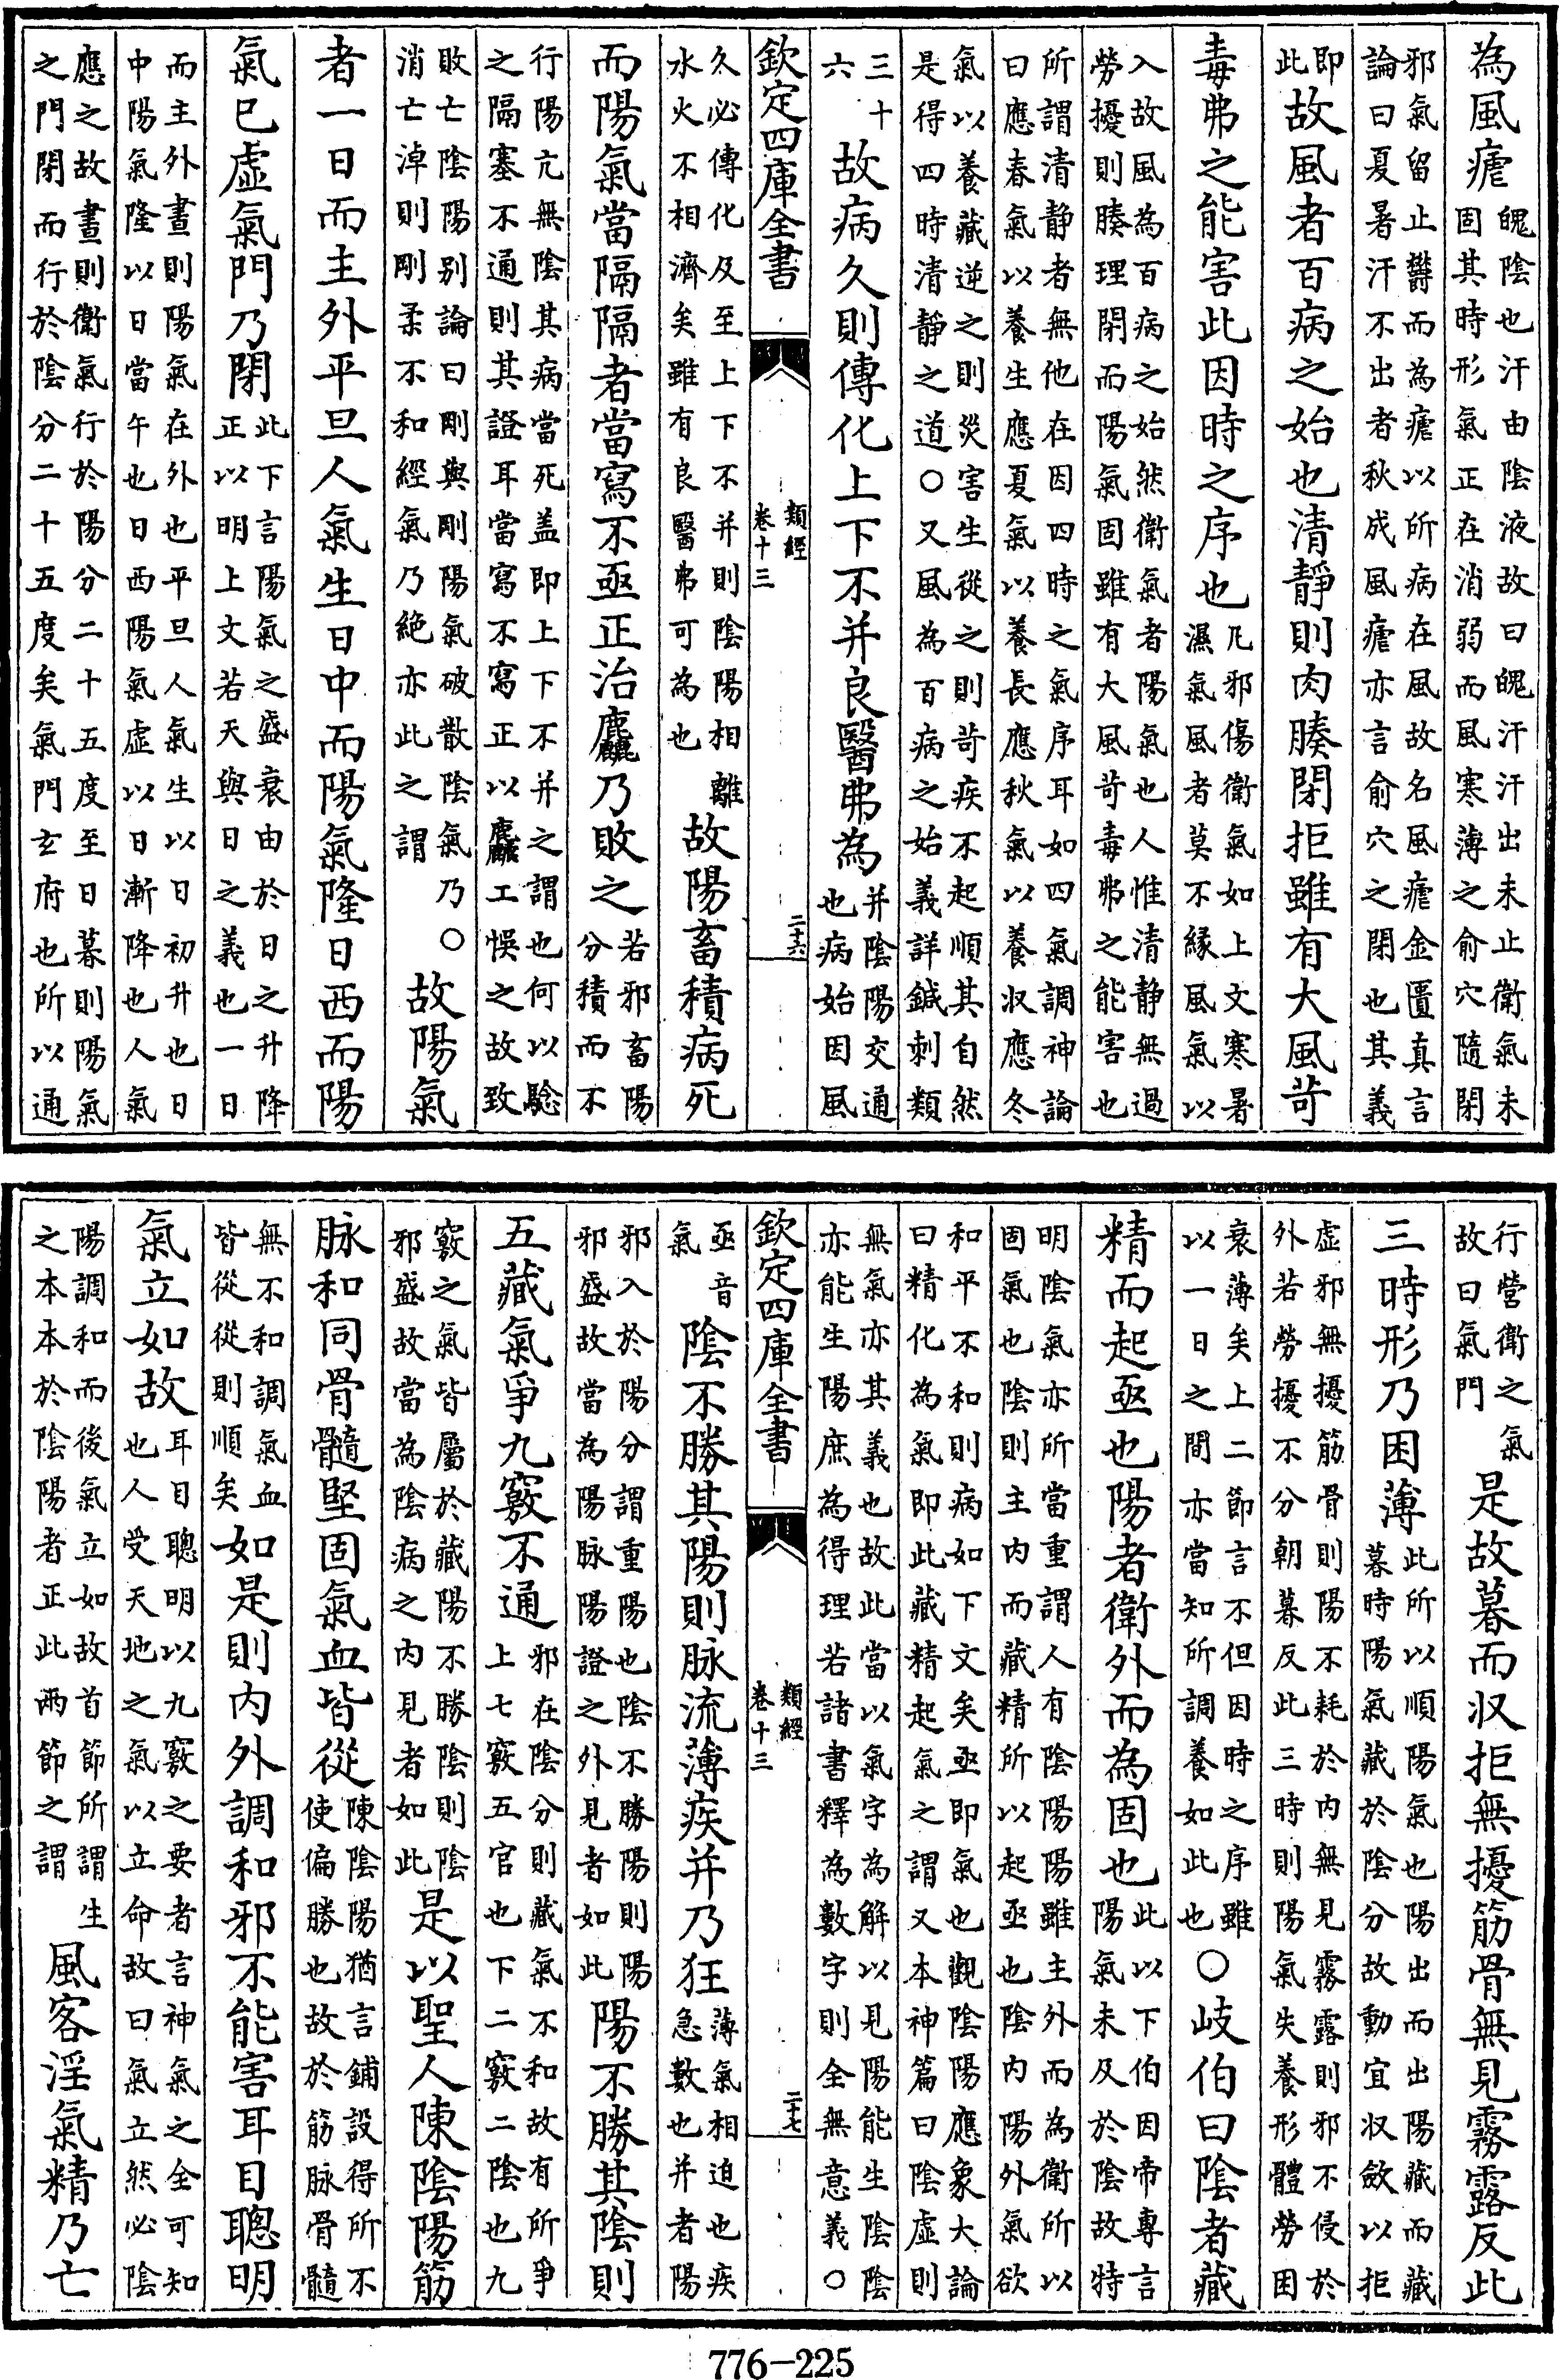 為風瘧魄陰也汗由陰液故曰魄汗汗出未止衛氣未固其時形氣正在消弱而風寒薄之俞穴隨閉
邪氣留止鬱而為瘧以所病在風故名風瘧金匱真言論曰夏暑汗不出者秋成風瘧亦言俞穴之閉也其義
即此故風者百病之始也清靜則肉腠閉拒雖有大風苛
毒弗之能害此因時之序也凡邪傷衛氣如上文寒暑濕氣風者莫不緣風氣以
入故風為百病之始然衛氣者陽氣也人惟清静無過勞擾則腠理閉而陽氣固雖有大風苛毒弗之能害也
所謂清静者無他在因四時之氣序耳如四氣調神論曰應春氣以養生應夏氣以養長應秋氣以養收應冬
氣以養藏逆之則災害生從之則苛疾不起順其自然是得四時清靜之道○又風為百病之始義詳鍼刺類
三十六故病久則傳化上下不并良醫弗為并陰陽交通也病始因風
欽定四庫全書 類經卷十三 二十六
久必傳化及至上下不并則陰陽相離水火不相濟矣雖有良醫弗可為也故陽畜積病死
而陽氣當隔隔者當寫不亟正治麤乃敗之若邪畜陽分積而不
行陽亢無陰其病當死盖即上下不并之謂也何以驗之隔塞不通則其證耳當寫不寫正以麤工悮之故致
敗亡陰陽别論曰剛與剛陽氣破散陰氣乃消亡淖則剛柔不和經氣乃絶亦此之謂○故陽氣
者一日而主外平旦人氣生日中而陽氣隆日西而陽
氣已虛氣門乃閉此下言陽氣之盛衰由於日之升降正以明上文若天與日之義也一日
而主外晝則陽氣在外也平旦人氣生以日初升也日中陽氣隆以日當午也日西陽氣虛以日漸降也人氣
應之故晝則衛氣行於陽分二十五度至日暮則陽氣之門閉而行於陰分二十五度矣氣門玄府也所以通
行營衛之氣故曰氣門是故暮而收拒無擾筋骨無見霧露反此
三時形乃困薄此所以順陽氣也陽出而出陽藏而藏暮時陽氣藏於陰分故動宜收斂以拒
虛邪無擾筋骨則陽不耗於內無見霧露則邪不侵於外若勞擾不分朝暮反此三時則陽氣失養形體勞困
衰薄矣上二節言不但因時之序雖以一日之間亦當知所調養如此也○岐伯曰陰者藏
精而起亟也陽者衛外而為固也此以下伯因帝專言陽氣未及於陰故特
明陰氣亦所當重謂人有陰陽陽雖主外而為衛所以固氣也陰則主內而藏精所以起亟也陰內陽外氣欲
和平不和則病如下文矣亟即氣也觀陰陽應象大論曰精化為氣即此藏精起氣之謂又本神篇曰陰虛則
無氣亦其義也故此當以氣字為解以見陽能生陰陰亦能生陽庶為得理若諸書釋為數字則全無意義○
欽定四庫全書 類經卷十三 二十七
亟音氣陰不勝其陽則脉流薄疾并乃狂薄氣相迫也疾急數也并者陽
邪入於陽分謂重陽也陰不勝陽則陽邪盛故當為陽脉陽證之外見者如此陽不勝其陰則
五藏氣爭九竅不通邪在陰分則藏氣不和故有所爭上七竅五官也下二竅二陰也九
竅之氣皆屬於藏陽不勝陰則陰邪盛故當為陰病之內見者如此是以聖人陳陰陽筋
脉和同骨髓堅固氣血皆從陳陰陽猶言鋪設得所不使偏勝也故於筋脉骨髓
無不和調氣血皆從從則順矣如是則內外調和邪不能害耳目聰明
氣立如故耳目聰明以九竅之要者言神氣之全可知也人受天地之氣以立命故曰氣立然必陰
陽調和而後氣立如故首節所謂生之本本於陰陽者正此兩節之謂風客淫氣精乃亡
776-225